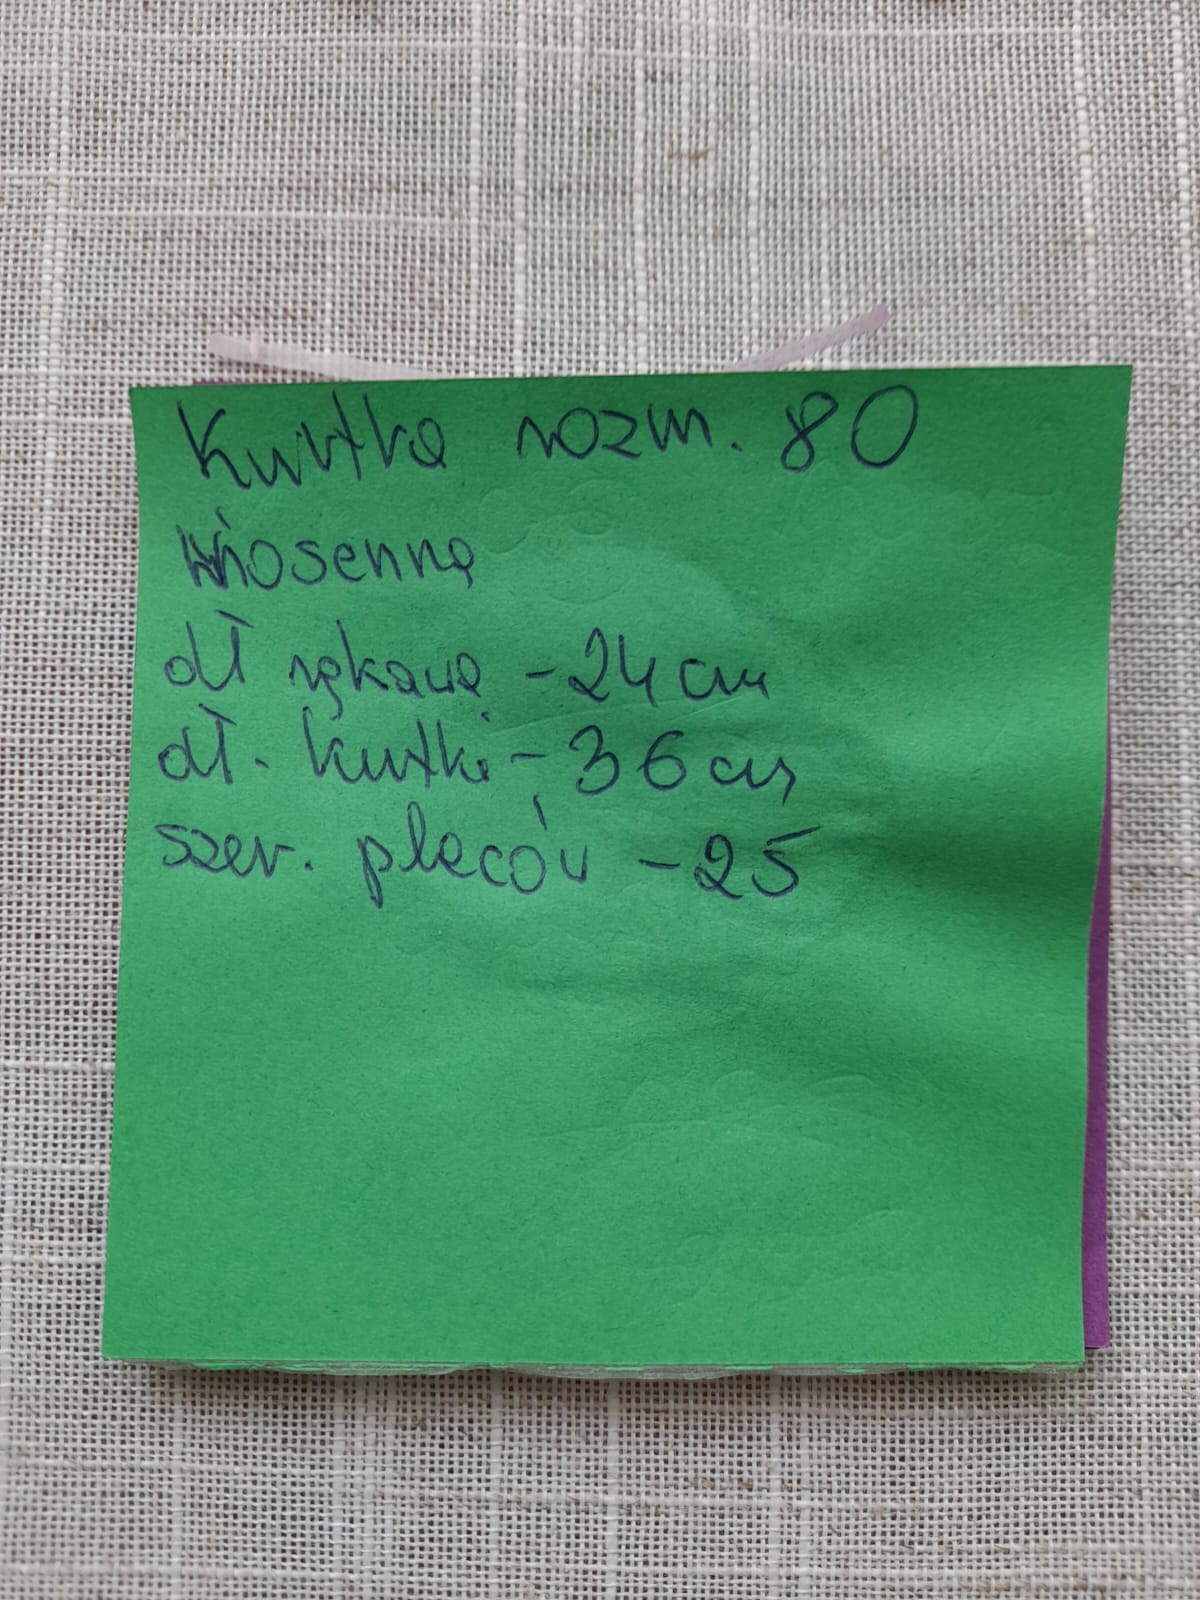 Kurtka rozm. 80
wiosenna
dł rękawa - 24 cm
dł. kurtki - 36 cm
szer. pleców - 25